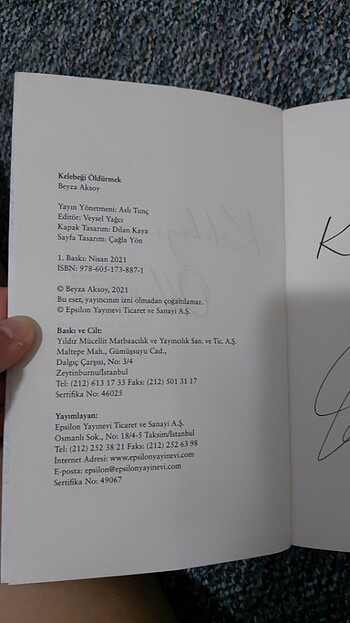 Kelebeği Öldürmek
Beyza Aksoy
Yayın Yönetmeni: Aslı Tunç
Editör: Veysel Yağcı
Kapak Tasarım: Dilan Kaya
Sayfa Tasarım: Çağla Yön
1. Baskı: Nisan 2021
ISBN: 978-605-173-887-1
© Beyza Aksoy, 2021
Bu eser, yayıncının izni olmadan çoğaltılamaz.
© Epsilon Yayınevi Ticaret ve Sanayi A.Ş.
Baskı ve Cilt:
Yıldız Mücellit Matbaacılık ve Yayıncılık San. ve Tic. A.Ş.
Maltepe Mah., Gümüşsuyu Cad.,
Dalgıç Çarşısı, No: 3/4
Zeytinburnu/İstanbul
Tel: (212) 613 17 33 Faks: (212) 501 31 17
Sertifika No: 46025
Yayımlayan:
Epsilon Yayınevi Ticaret ve Sanayi A.Ş.
Osmanlı Sok., No: 18/4-5 Taksim/İstanbul
Tel: (212) 252 38 21 Faks: (212) 252 63 98
İnternet Adresi: www.epsilonyayinevi.com
E-posta: epsilon@epsilonyayinevi.com
Sertifika No: 49067
K